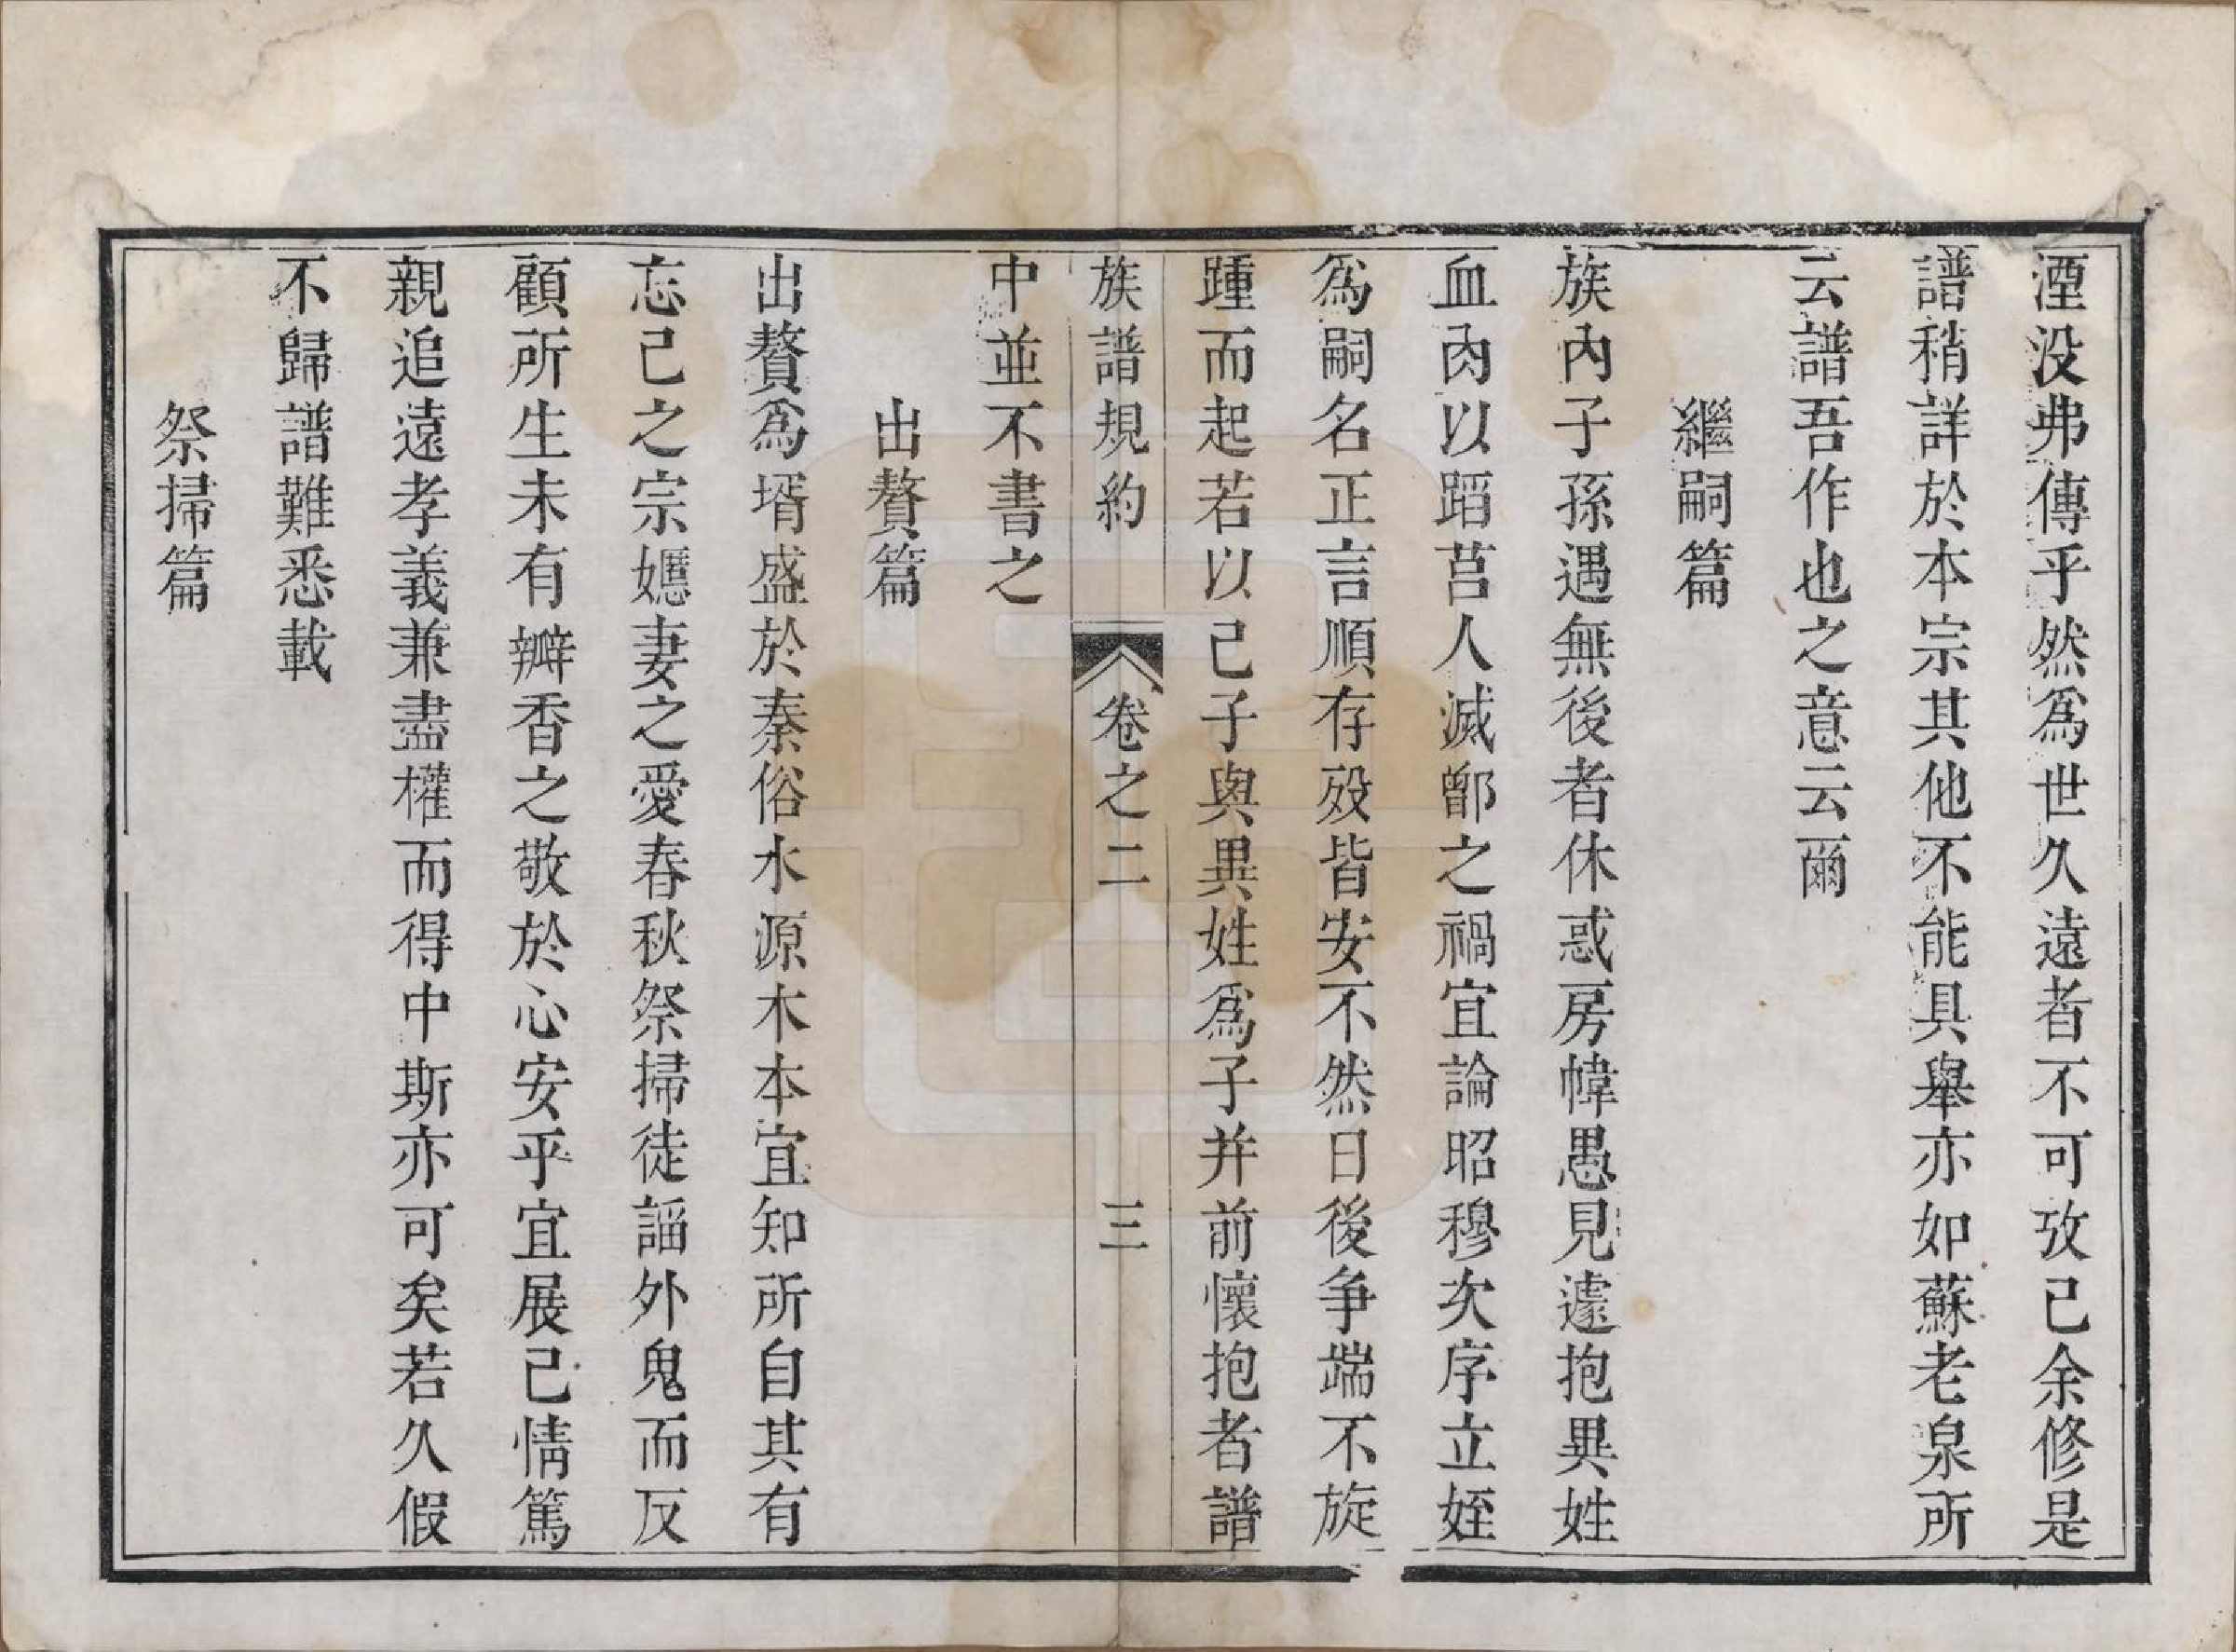 湮没弗傳乎然爲世久遠者不可攷已余修是
譜稍詳於本宗其他不能具舉亦如蘇老泉所
云譜吾作也之意云爾
繼嗣篇
族內子孫遇無後者休惑房幃愚見遽抱異姓
血肉以蹈莒人滅鄫之禍宜論昭穆次序立姪
爲嗣名正言順存殁皆安不然日後争端不旋
踵而起若以己子與異姓爲子并前懷抱者譜
族譜規約
卷之二
三
中並不書之
出贅篇
出贅爲壻盛於秦俗水源木本宜知所自其有
忘己之宗嬺妻之愛春秋祭掃徒謟外鬼而反
顧所生未有瓣香之敬於心安乎宜展己情篤
親追遠孝義兼盡權而得中斯亦可矣若久假
不歸譜難悉載
祭掃篇